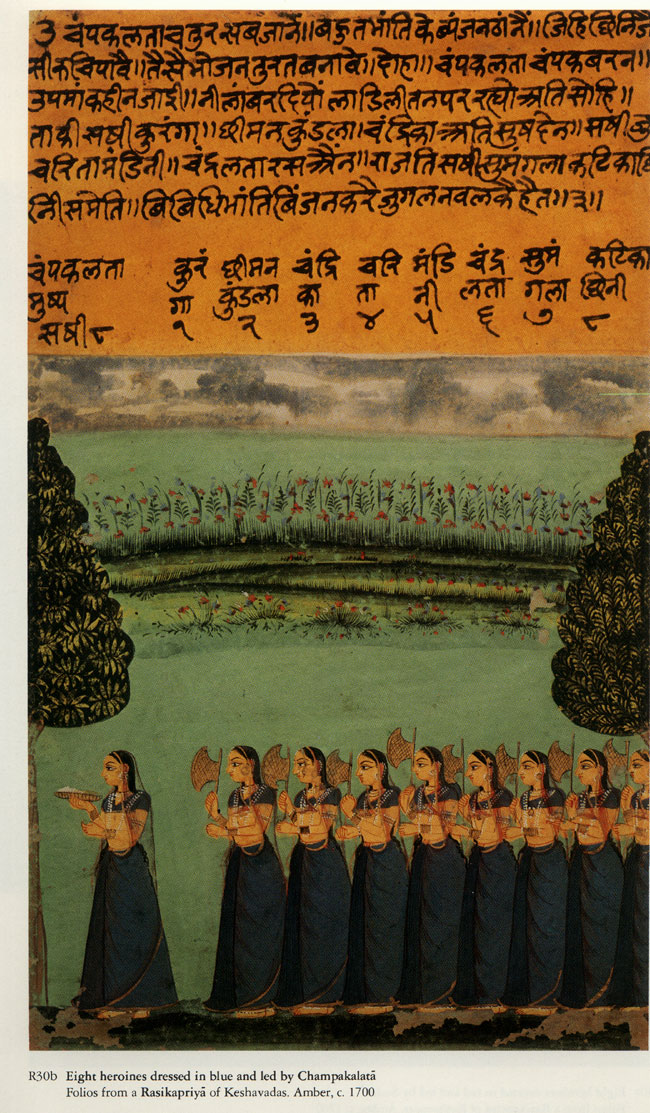 ३ चंपकलता चतुर सब जानें॥ बहुत भांति के ब्यंजन ठांनैं॥ जिहि छिनि जै
सी रुचि पावै॥ तैसे भोजन तुरत बनावे॥ दोहा॥ चंपकलता चंपक बरन॥
उपमां कही न जाई॥ नीलांबर दियो लाडिली तन पर रह्यो अति सोहि॥
ताकी सषी कुरंगा॥ छीमन कुंडला॥ चंद्रिका अति सुष देन॥ सषी
चरिता मंडिनी॥ चंद्रलता रस अैंन॥ राजति सषी सुमंगला कटि काछि
नी समेति॥ बिबिधि भांति बिंजन करै जुगल नवल कै हैत॥३॥
चंपकलता कुरं छीमन चंद्रि चरि मंडि चंद्र सुमं कटिका
मुष्य गा कुंडला का ता नी लता गला छिनी
सषी ८ १ २ ३ ४ ५ ६ ७ ८
R30b Eight heroines dressed in blue and led by Champakalatā
Folios from a Rasikapriyā of Keshavadas. Amber, c. 1700